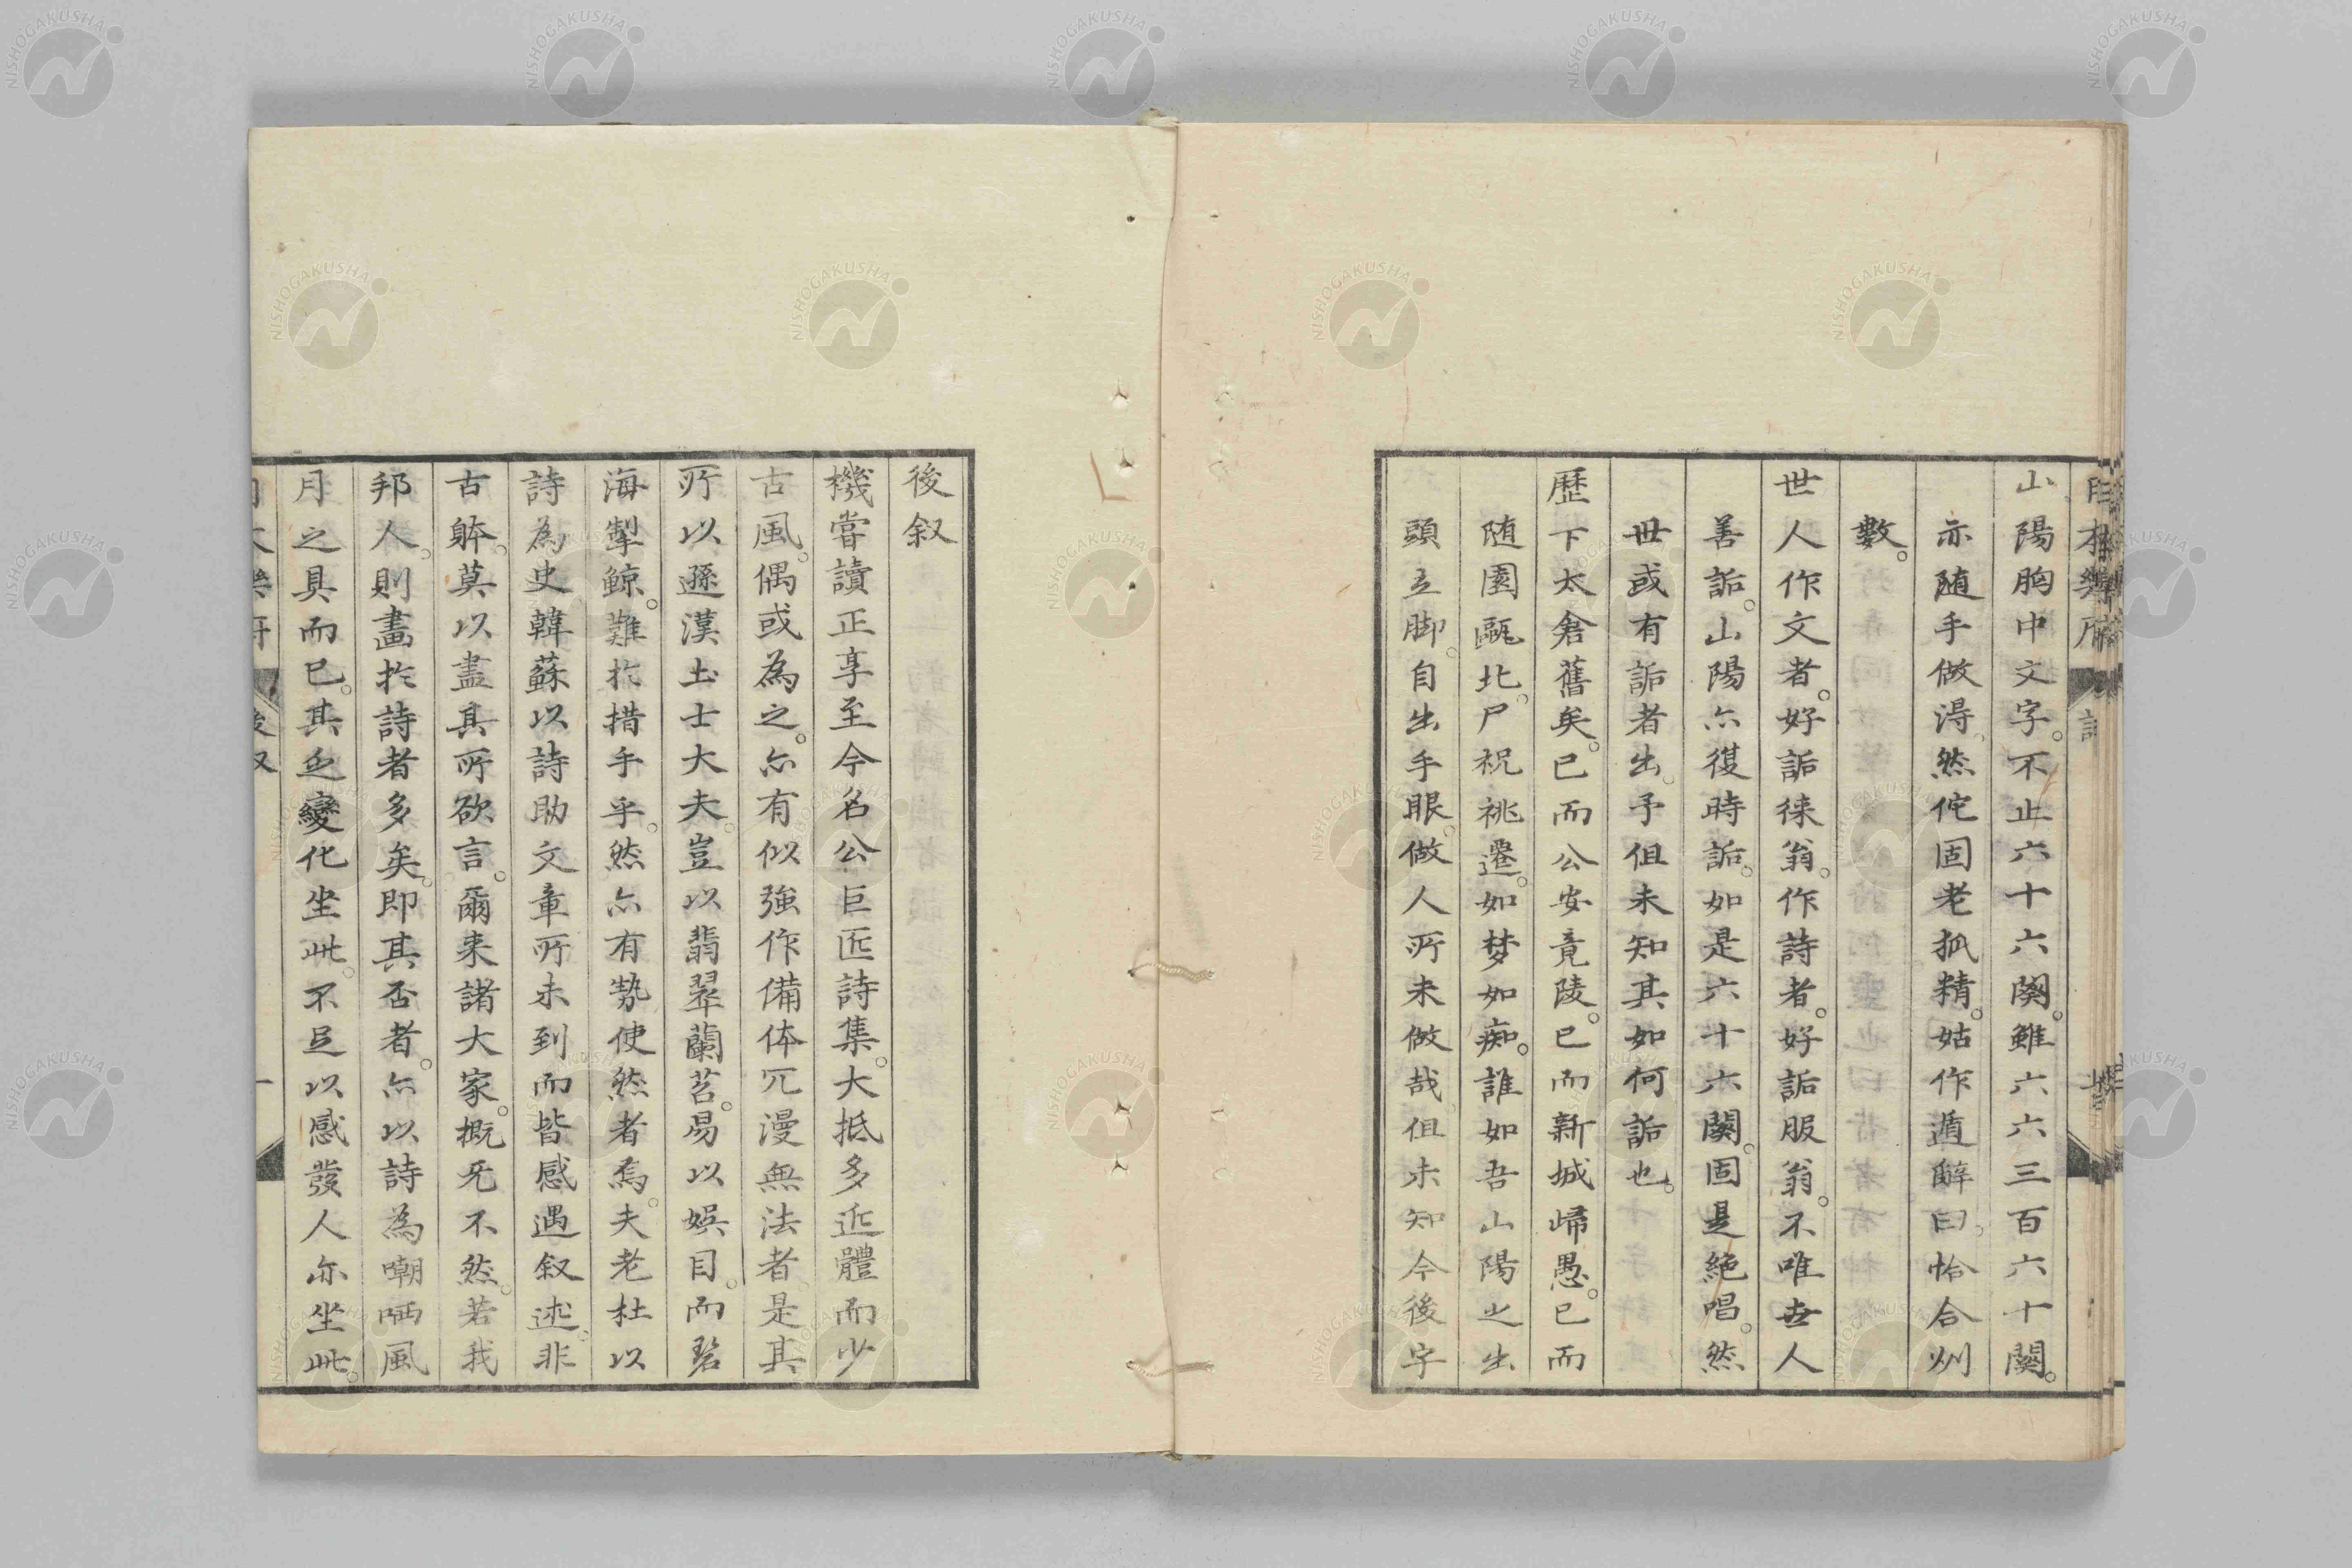 日本樂府
山陽胸中文字。不止六十六闋。雖六六三百六十闋。
亦随手做得。然佗固老狐精。姑作遁辭曰。恰合州
數。
世人作文者。好詬徠翁。作詩者。好詬服翁。不唯世人
善詬。山陽亦復時詬。如是六十六闋。固是絶唱。然
世或有詬者出。予但未知其如何詬也。
歷下太倉舊矣。已而公安竟陵。已而新城㱕愚。已而
随園甌北。尸祝祧遷。如梦如痴。誰如吾山陽之出
頭立脚。自出手眼。做人所未做哉。但未知今後字
後叙
機嘗讀正享至今名公巨匠詩集。大抵多近體而少
古風。偶或為之。亦有似強作備体冗漫無法者。是其
所以遜漢土士大夫。豈以翡翠蘭苕。易以娯目。而碧
海掣鯨。難於措手乎。然亦有勢使然者焉。夫老杜以
詩為史韓蘇以詩助文章所未到而皆感遇叙述。非
古躰。莫以盡其所欲言。爾来諸大家。概旡不然。若我
邦人。則畫於詩者多矣。即其否者。亦以詩為嘲哂風
月之具而已。其乏變化坐此。不足以感發人亦坐此。
後叙
一